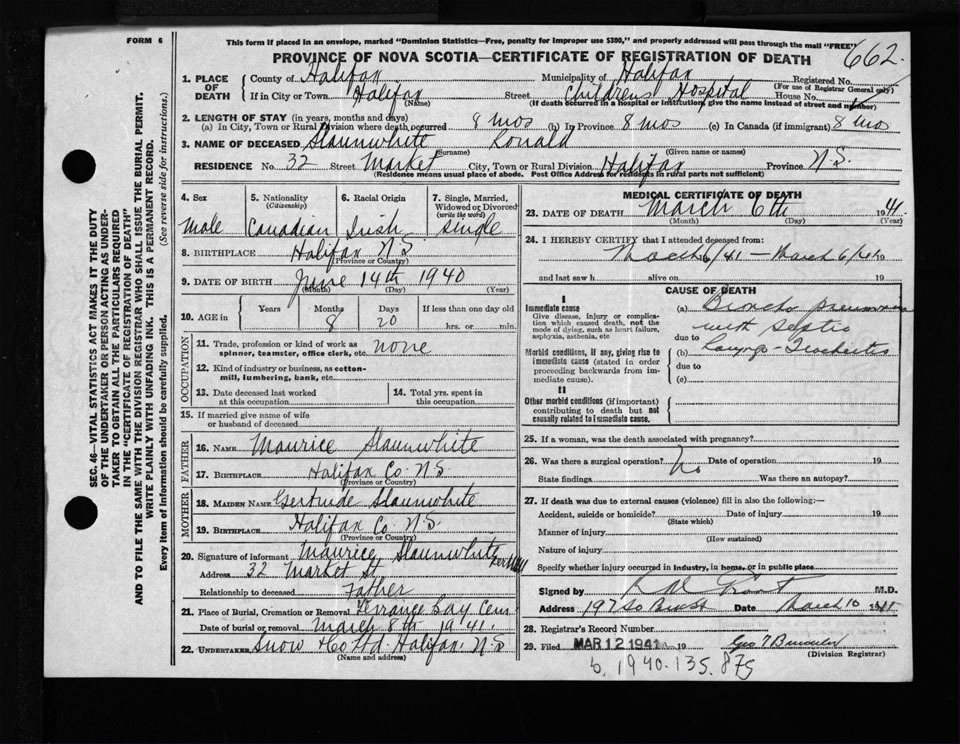 FORM 6
This form if placed in an envelope, marked "Dominion Statistics—Free, penalty for improper use $300," and properly addressed will pass through the mail "FREE"
PROVINCE OF NOVA SCOTIA—CERTIFICATE OF REGISTRATION OF DEATH
662.
1. PLACE OF DEATH
County of Halifax Municipality of Halifax Registered No.
(For use of Registrar General only)
If in City or Town Halifax Street Childrens Hospital House No.
(Name) (If death occurred in a hospital or institution, give the name instead of street and number)
2. LENGTH OF STAY (in years, months and days)
(a) In City, Town or Rural Division where death occurred 8 mos (b) In Province 8 mos (c) In Canada (if immigrant) 8 mos
3. NAME OF DECEASED Slaunwhite Ronald
(Surname) (Given name or names)
RESIDENCE No. 32 Street Market City, Town or Rural Division Halifax Province N.S.
(Residence means usual place of abode. Post Office Address for residents in rural parts not sufficient)
4. Sex Male
5. Nationality (Citizenship) Canadian
6. Racial Origin Irish
7. Single, Married, Widowed or Divorced (write the word) Single
8. BIRTHPLACE Halifax N.S.
(Province or Country)
9. DATE OF BIRTH June 14th 1940
(Month) (Day) (Year)
10. AGE in Years Months 8 Days 20 If less than one day old
hrs. or min.
OCCUPATION
11. Trade, profession or kind of work as spinner, teamster, office clerk, etc. none
12. Kind of industry or business, as cotton-mill, lumbering, bank, etc.
13. Date deceased last worked at this occupation
14. Total yrs. spent in this occupation
15. If married give name of wife or husband of deceased
FATHER
16. NAME Maurice Slaunwhite
17. BIRTHPLACE Halifax Co. N.S.
(Province or Country)
MOTHER
18. MAIDEN NAME Gertrude Slaunwhite
19. BIRTHPLACE Halifax Co. N.S.
(Province or Country)
20. Signature of informant Maurice Slaunwhite
Address 32 Market St
Relationship to deceased Father
21. Place of Burial, Cremation or Removal Terrance Bay Cem
Date of burial or removal March 8th 1941.
22. UNDERTAKER Snow & Co Ltd. Halifax N.S
(Name and address)
MEDICAL CERTIFICATE OF DEATH
23. DATE OF DEATH March 6th 1941.
(Month) (Day) (Year)
24. I HEREBY CERTIFY that I attended deceased from:
March 6/41 — March 6/41 19
and last saw h alive on 19
CAUSE OF DEATH
I
Immediate cause
Give disease, injury or complication which caused death, not the mode of dying, such as heart failure, asphyxia, asthenia, etc
(a) Broncho pneumonia
with Septic
due to
Morbid conditions, if any, giving rise to immediate cause (stated in order proceeding backwards from immediate cause).
(b) Laryngo-Tracheitis
due to
(c)
II
Other morbid conditions (if important) contributing to death but not causally related to immediate cause.
25. If a woman, was the death associated with pregnancy?
26. Was there a surgical operation? No Date of operation 19
State findings Was there an autopsy?
27. If death was due to external causes (violence) fill in also the following:—
Accident, suicide or homicide? Date of injury 19
(State which)
Manner of injury
(How sustained)
Nature of injury
Specify whether injury occurred in industry, in home, or in public place
Signed by M.D.
Address 197 So Date March 10 1941
28. Registrar's Record Number
29. Filed MAR 12 1941 19
(Division Registrar)
b. 1940-135.875
SEC. 46—VITAL STATISTICS ACT MAKES IT THE DUTY
OF THE UNDERTAKER OR PERSON ACTING AS UNDER-
TAKER TO OBTAIN ALL THE PARTICULARS REQUIRED
IN THE "CERTIFICATE OF REGISTRATION OF DEATH"
AND TO FILE THE SAME WITH THE DIVISION REGISTRAR WHO SHALL ISSUE THE BURIAL PERMIT.
WRITE PLAINLY WITH UNFADING INK. THIS IS A PERMANENT RECORD.
Every item of information should be carefully supplied. (See reverse side for instructions.)